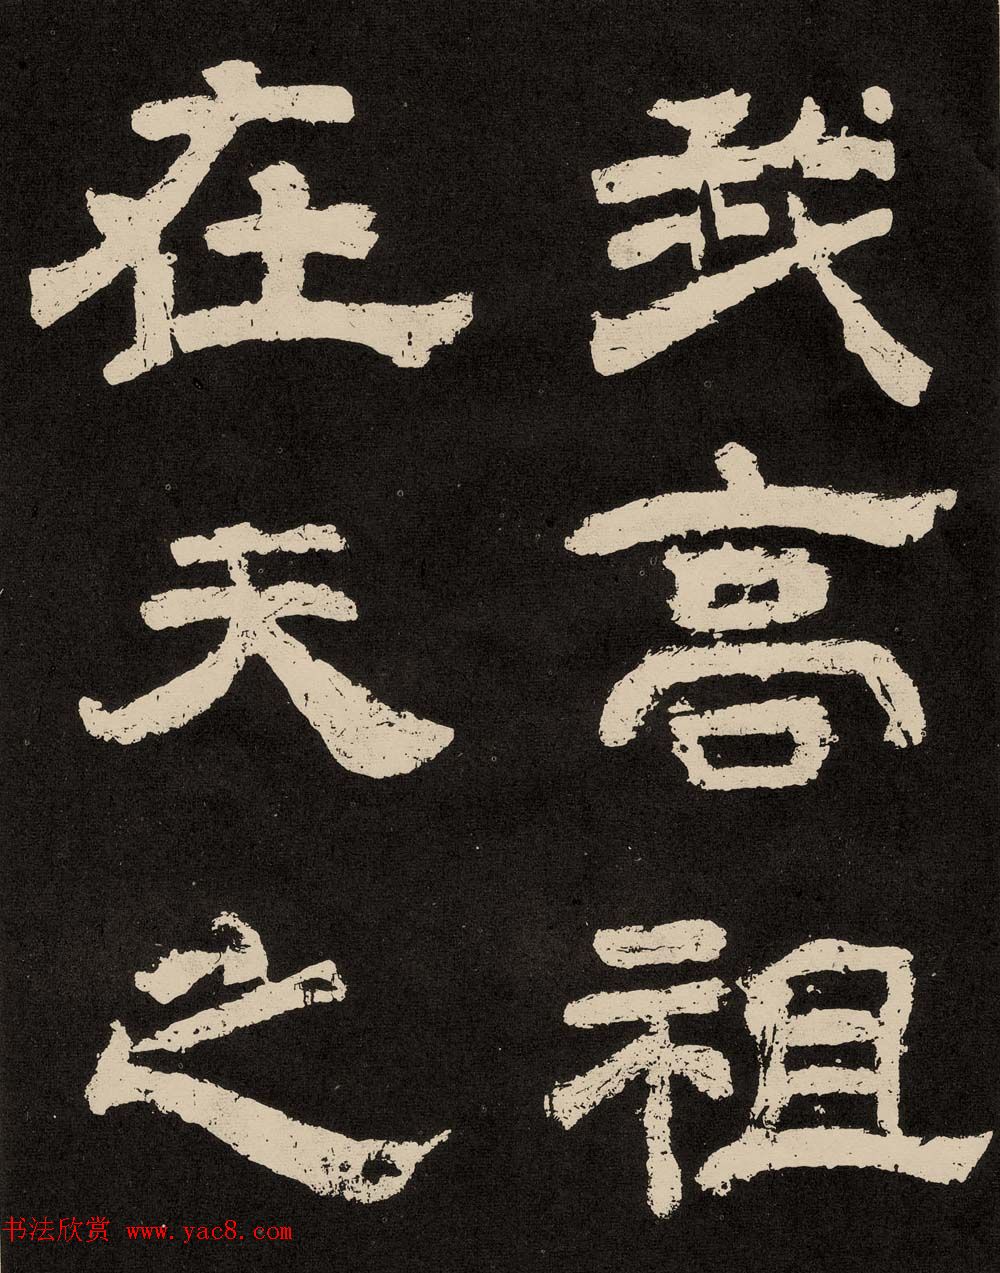 我高祖
在天之
书法欣赏 www.yac8.com